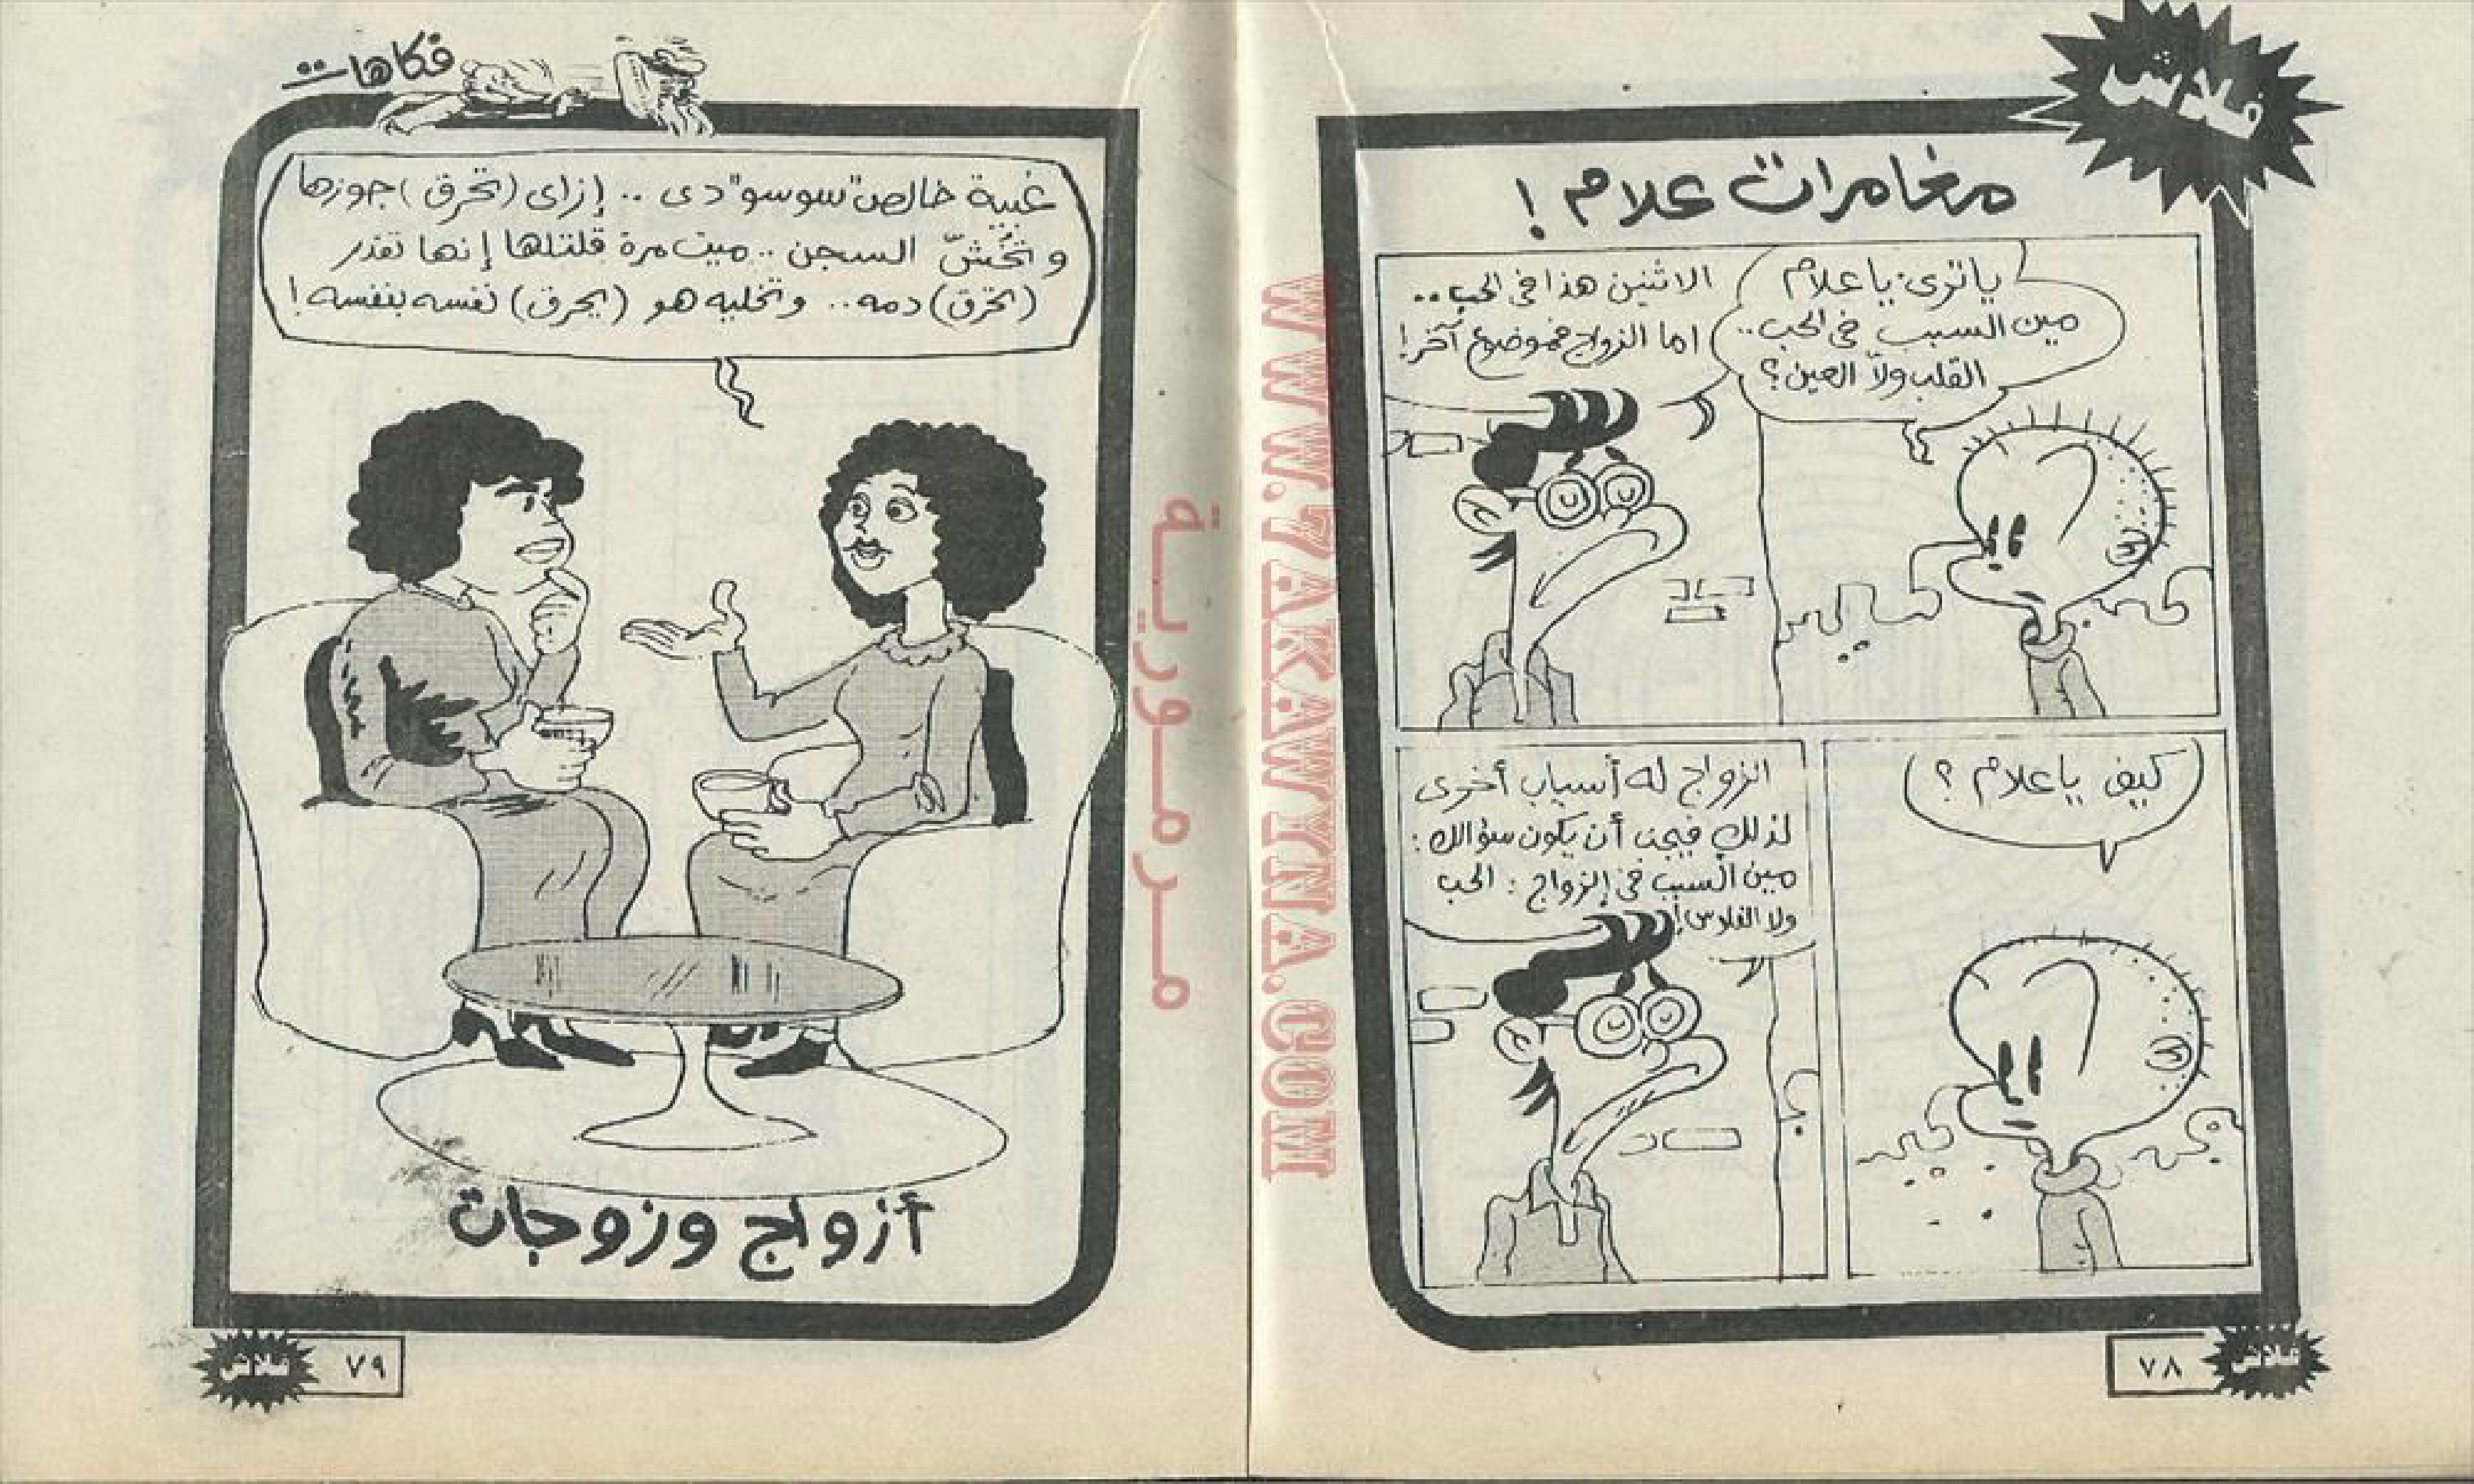 فلاش
مغامرات علام !
ياترى يا علام
مين السبب في الحب..
القلب ولاّ العين؟
الاثنين هذا في الحب..
اما الزواج فموضوع آخر!
كيف يا علام ؟
الزواج له أسباب أخرى
لذلك فيجب أن يكون سؤالك :
مين السبب في الزواج : الحب
ولا الفلاس!
٧٨
فلاش
فكاهات
غبية خالص "سوسو" دى .. إزاى (تحرق) جوزها
و تخُشّ السجن .. ميت مرة قلتلها إنها تقدر
(تحرق) دمه.. وتخليه هو (يحرق) نفسه بنفسه!
أزواج وزوجات
٧٩
فلاش
مرمورية
WWW.7AKAWINA.COM